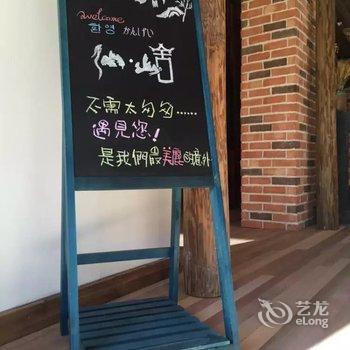 welcome
환영 かんげい
仙山舍
不需太匆匆......
遇見您!
是我們最美麗的意外
艺龙
eLong.com